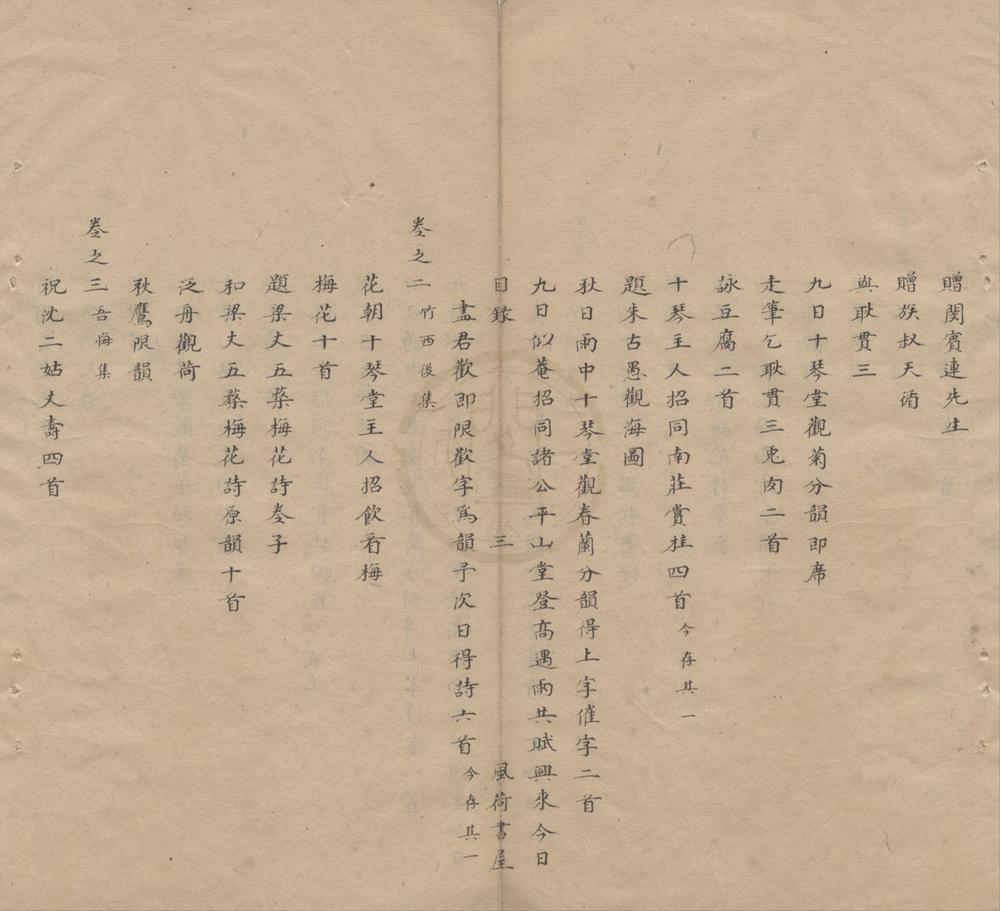 贈閔賓連先生
贈族叔天滀
與耿貫三
九日十琴堂觀菊分韻即席
走筆乞耿貫三兎肉二首
詠豆腐二首
十琴主人招同南莊賞桂四首今存其一
題朱古愚觀海圖
秋日雨中十琴堂觀春蘭分韻得上字催字二首
九日似菴招同諸公平山堂登高遇雨共賦興來今日
目録 三 風荷書屋
盡君歡即限歡字爲韻予次日得詩六首今存其一
卷之二竹西後集
花朝十琴堂主人招飲看梅
梅花十首
題梁丈五蘂梅花詩卷子
和梁丈五蘂梅花詩原韻十首
泛舟觀荷
秋鷹限韻
卷之三吾悔集
祝沈二姑丈壽四首